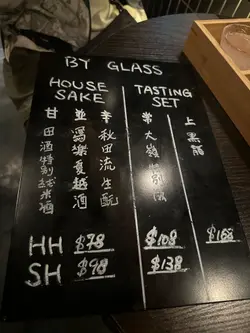 BY GLASS
HOUSE SAKE
甘
田酒特別純米酒
並
寫樂夏越酒
辛
秋田流生酛
TASTING SET
常
大嶺
上
黒龍
HH $78 $108 $168
SH $98 $138